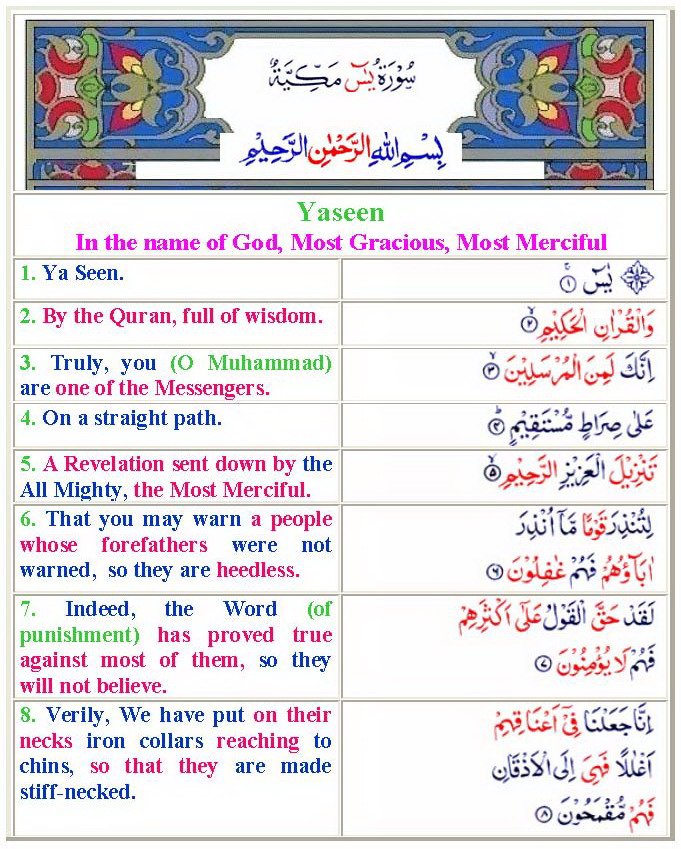 سُوْرَةُ يٰسٓ مَكِّيَّةٌ
بِسْمِ اللهِ الرَّحْمٰنِ الرَّحِيْمِ
Yaseen
In the name of God, Most Gracious, Most Merciful
1. Ya Seen.
يٰسٓ ۚ ﴿۱﴾
2. By the Quran, full of wisdom.
وَالْقُرْاٰنِ الْحَكِيْمِ ۙ ﴿۲﴾
3. Truly, you (O Muhammad)
are one of the Messengers.
اِنَّكَ لَمِنَ الْمُرْسَلِيْنَ ۙ ﴿۳﴾
4. On a straight path.
عَلٰى صِرَاطٍ مُّسْتَقِيْمٍ ؕ ﴿۴﴾
5. A Revelation sent down by the
All Mighty, the Most Merciful.
تَنْزِيْلَ الْعَزِيْزِ الرَّحِيْمِ ۙ ﴿۵﴾
6. That you may warn a people
whose forefathers were not
warned, so they are heedless.
لِتُنْذِرَ قَوْمًا مَّاۤ اُنْذِرَ
اٰبَآؤُهُمْ فَهُمْ غٰفِلُوْنَ ﴿۶﴾
7. Indeed, the Word (of
punishment) has proved true
against most of them, so they
will not believe.
لَقَدْ حَقَّ الْقَوْلُ عَلٰۤى اَكْثَرِهِمْ
فَهُمْ لَا يُؤْمِنُوْنَ ﴿۷﴾
8. Verily, We have put on their
necks iron collars reaching to
chins, so that they are made
stiff-necked.
اِنَّا جَعَلْنَا فِيْۤ اَعْنَاقِهِمْ
اَغْلٰلًا فَهِىَ اِلَى الْاَذْقَانِ
فَهُمْ مُّقْمَحُوْنَ ﴿۸﴾